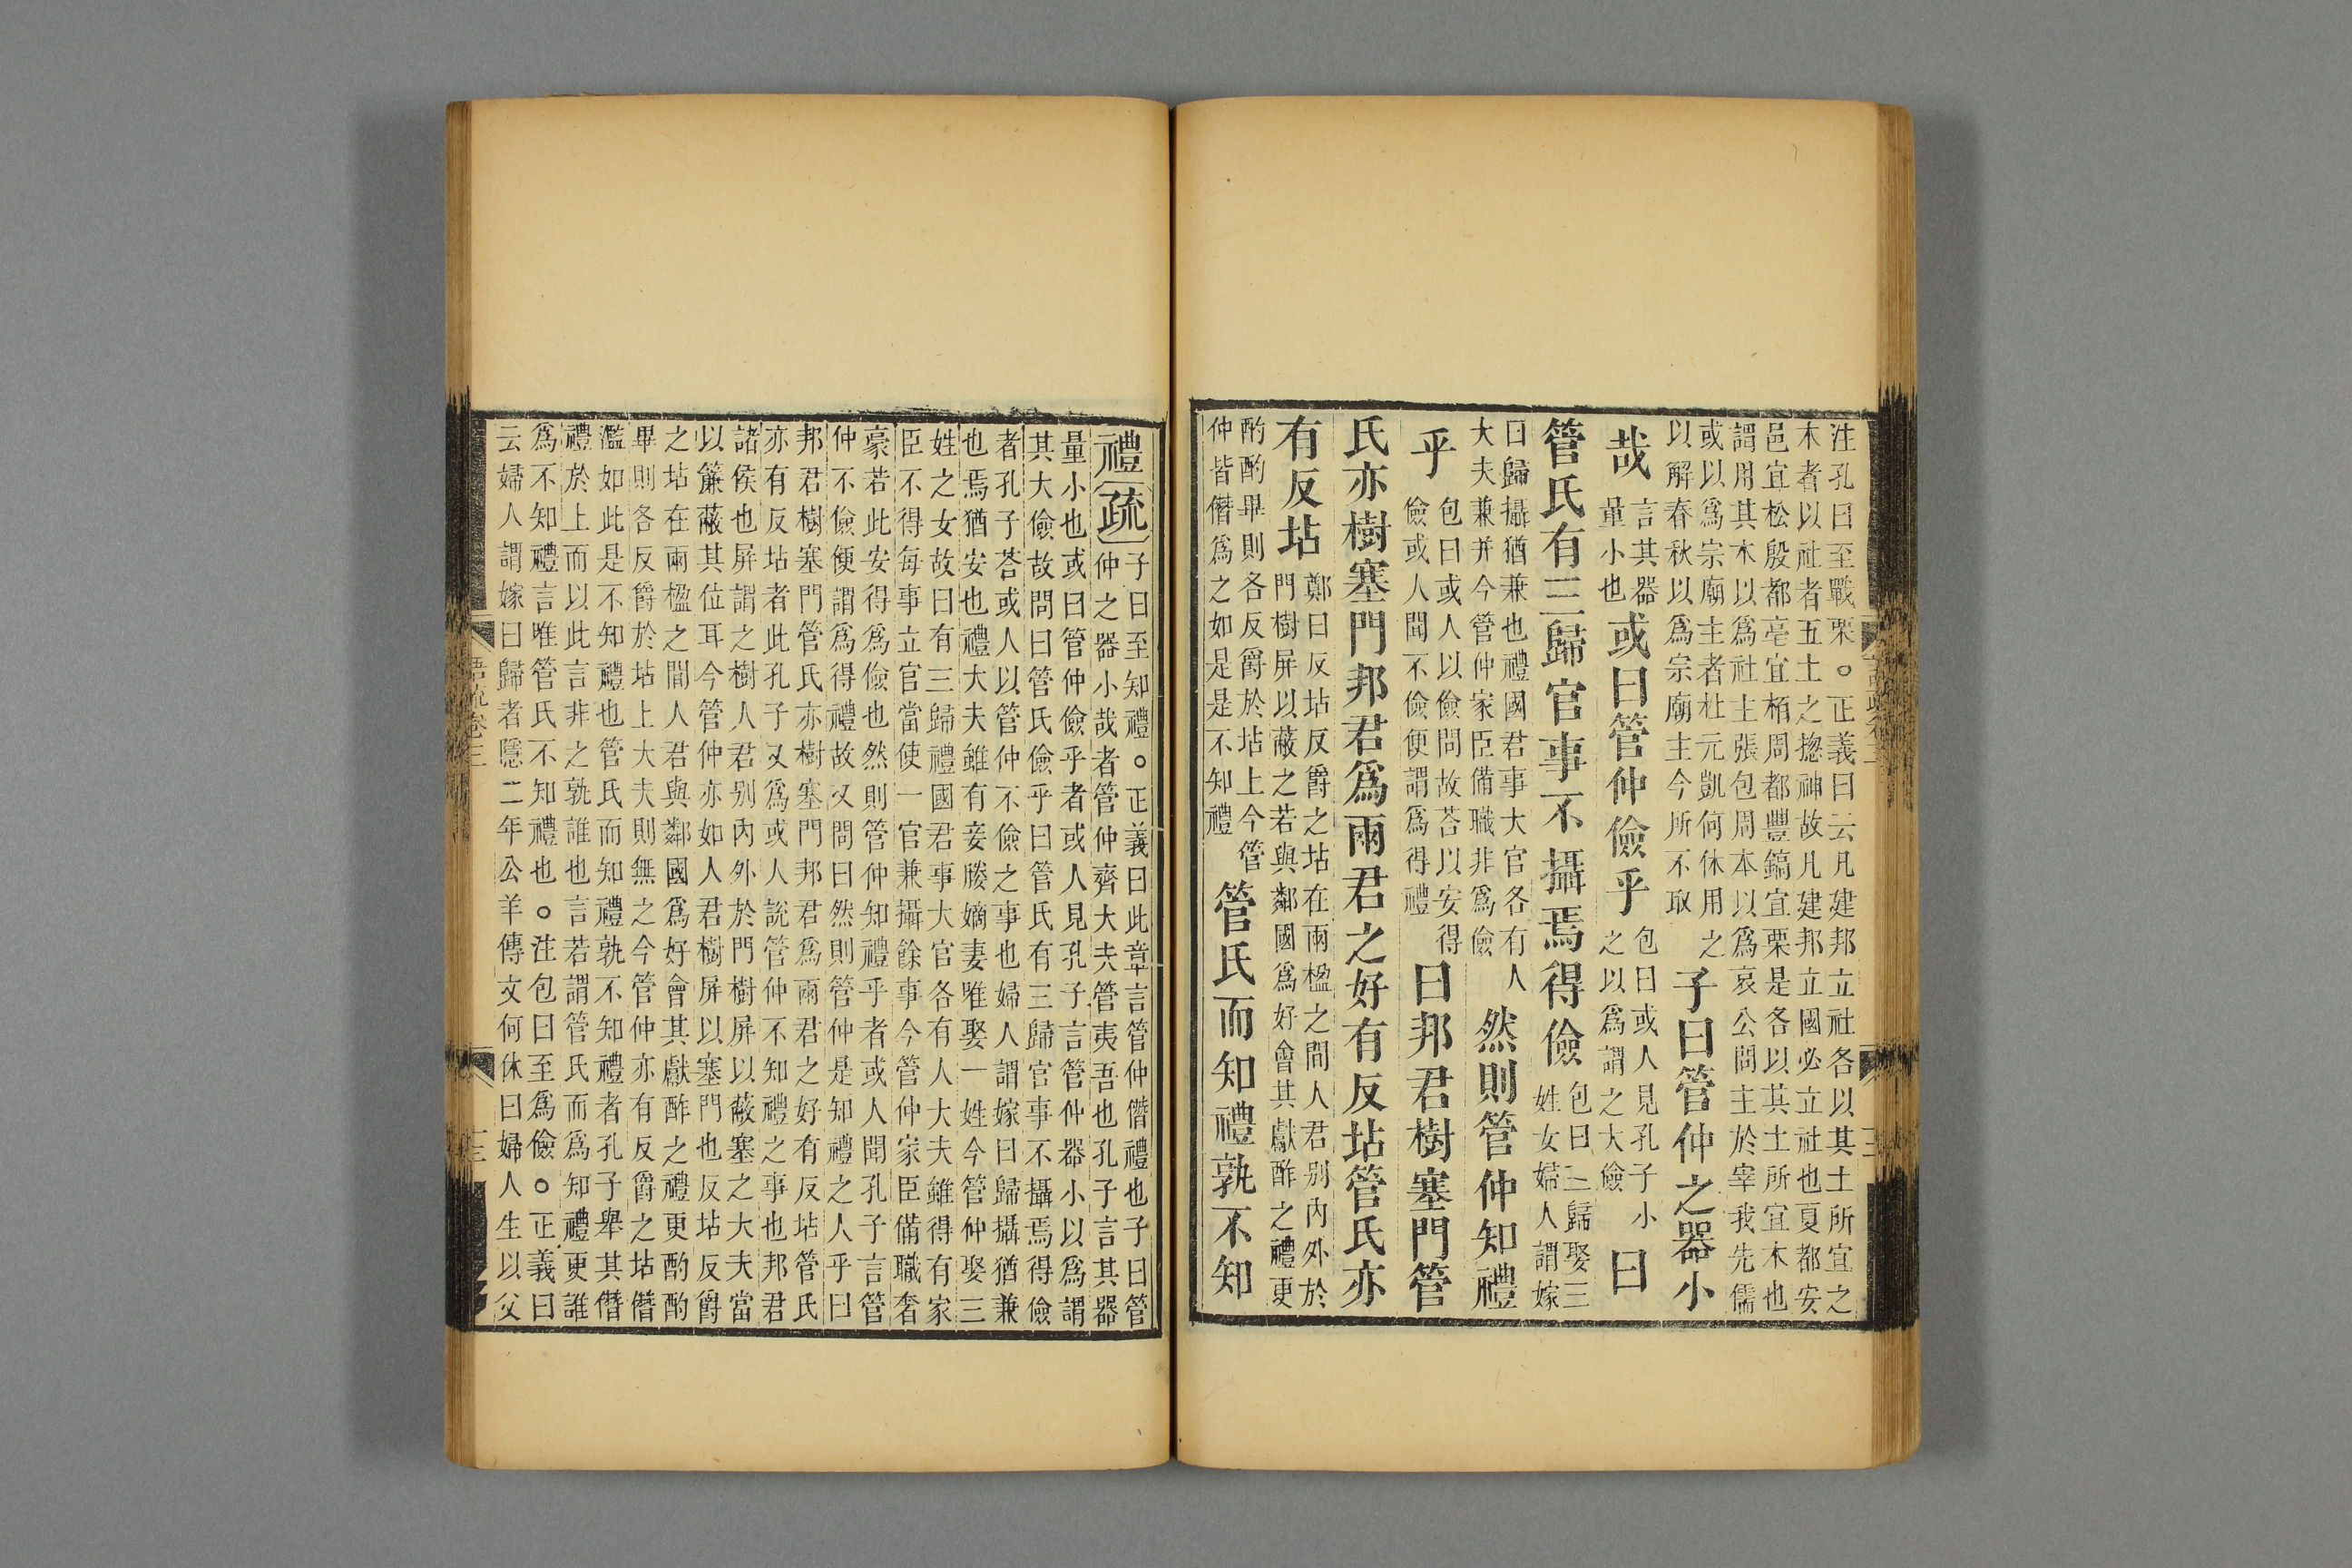 注孔曰至戰栗。正義曰云凡建邦立社各以其土所宜之
木者以社者五土之揔神故凡建邦立國必立社也夏都安
邑宜松殷都亳宜栢周都豐鎬宜栗是各以其土所宜木也
謂用其木以爲社主張包周本以爲哀公問主於宰我先儒
或以爲宗廟主者杜元凱何休用之
以解春秋以爲宗廟主今所不取
子曰管仲之器小
哉
言其器
量小也
或曰管仲儉乎
包曰或人見孔子小
之以爲謂之大儉
曰
管氏有三歸官事不攝焉得儉
包曰三歸娶三
姓女婦人謂嫁
曰歸攝猶兼也禮國君事大官各有人
大夫兼并今管仲家臣備職非爲儉
然則管仲知禮
乎
包曰或人以儉問故荅以安得
儉或人聞不儉便謂爲得禮
曰邦君樹塞門管
氏亦樹塞門邦君爲兩君之好有反坫管氏亦
有反坫
鄭曰反坫反爵之坫在兩楹之間人君别内外於
門樹屏以蔽之若與鄰國爲好會其獻酢之禮更
酌酌畢則各反爵於坫上今管
仲皆僭爲之如是是不知禮
管氏而知禮孰不知
禮
疏
子曰至知禮。正義曰此章言管仲僭禮也子曰管
仲之器小哉者管仲齊大夫管夷吾也孔子言其器
量小也或曰管仲儉乎者或人見孔子言管仲器小以爲謂
其大儉故問曰管氏儉乎曰管氏有三歸官事不攝焉得儉
者孔子荅或人以管仲不儉之事也婦人謂嫁曰歸攝猶兼
也焉猶安也禮大夫雖有妾媵嫡妻唯娶一姓今管仲娶三
姓之女故曰有三歸禮國君事大官各有人大夫雖得有家
臣不得每事立官當使一官兼攝餘事今管仲家臣備職奢
豪若此安得爲儉也然則管仲知禮乎者或人聞孔子言管
仲不儉便謂爲得禮故又問曰然則管仲是知禮之人乎曰
邦君樹塞門管氏亦樹塞門邦君爲兩君之好有反坫管氏
亦有反坫者此孔子又爲或人說管仲不知禮之事也邦君
諸侯也屏謂之樹人君别内外於門樹屏以蔽塞之大夫當
以簾蔽其位耳今管仲亦如人君樹屏以塞門也反坫反爵
之坫在兩楹之間人君與鄰國爲好會其獻酢之禮更酌酌
畢則各反爵於坫上大夫則無之今管仲亦有反爵之坫僭
濫如此是不知禮也管氏而知禮孰不知禮者孔子舉其僭
禮於上而以此言非之孰誰也言若謂管氏而爲知禮更誰
爲不知禮言唯管氏不知禮也。注包曰至爲儉。正義曰
云婦人謂嫁曰歸者隱二年公羊傳文何休曰婦人生以父